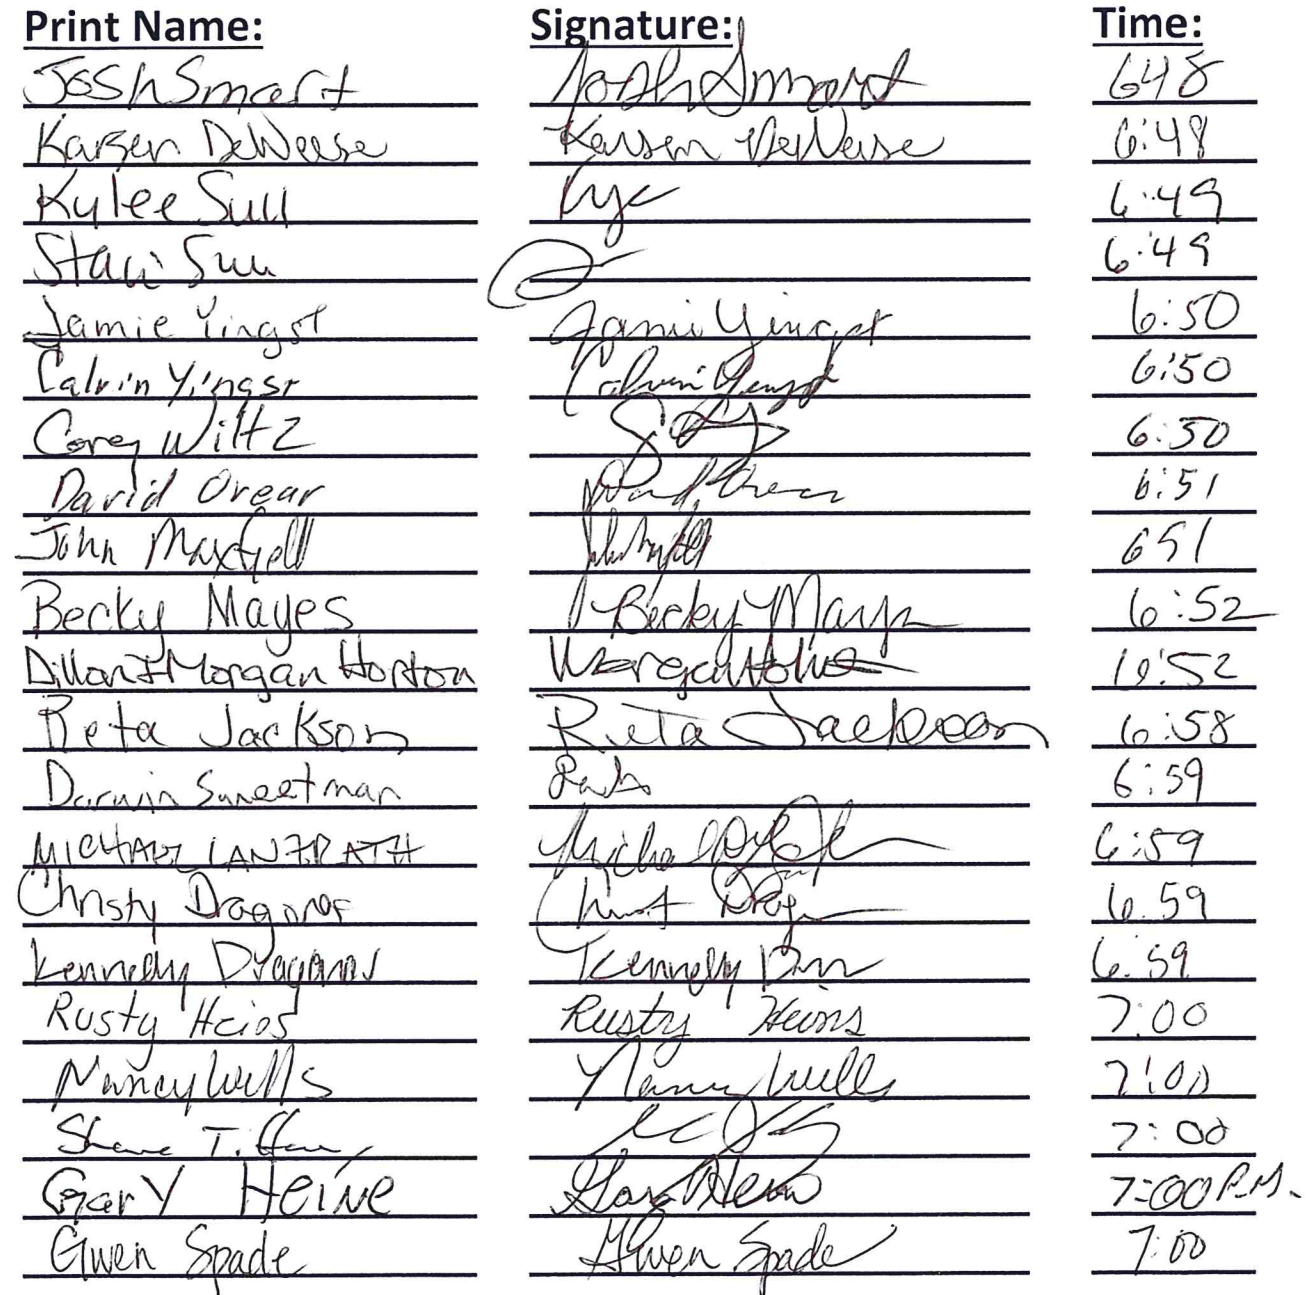 Print Name: Signature: Time:
Josh Smart Josh Smart 648
Karsen DeWeese Karsen DeWeese 6:48
Kylee Sull Kyc 6:49
Staci Sull 6:49
Jamie Yingst Jamie Yingst 6:50
Calvin Yingst Calvin Yingst 6:50
Corey Wiltz 6:50
David Orear David Orear 6:51
John Maxfiell 651
Becky Mayes Becky Mayes 6:52
Dillon & Morgan Horton Morgan Horton 6:52
Reta Jackson Reta Jackson 6:58
Darwin Sweetman 6:59
MICHAEL LANZRATH Michael 6:59
Christy Dragonas 6.59
Kennedy Dragonas Kennedy 6:59
Rusty Heins Rusty Heins 7:00
Nancy Wells Nancy Wells 7:00
Shane 7:00
Gary Heine Gary Heine 7:00 P.M.
Gwen Spade Gwen Spade 7:00